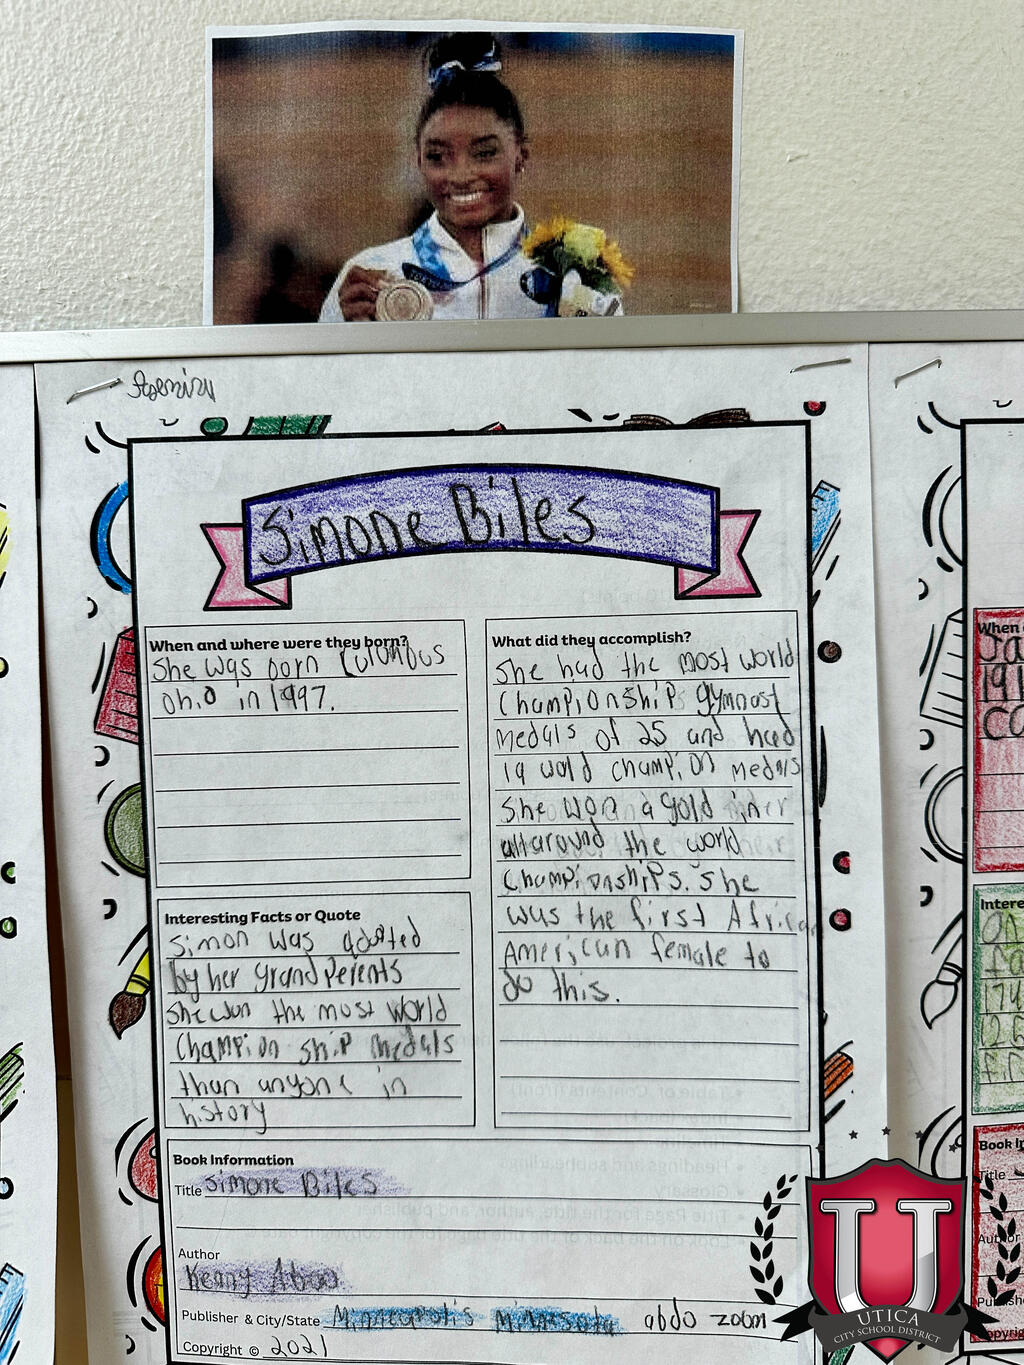 TOKYO
Simone Biles
When and where were they born?
She was born Columbus
Ohio in 1997.
What did they accomplish?
She had the most world
Championships gymnast
medals of 25 and had
19 wold champion medals
She won a gold in her
allaround the world
Championships. She
was the first Africa
American female to
do this.
Interesting Facts or Quote
Simon was adopted
by her Grandperents
She won the most world
Champion ship medals
than anyone in
history
Book Information
Title Simone Biles
Author
Kenny Abdo
Publisher & City/State Minneapolis Minnesota abdo zoom
Copyright © 2021
When
191
Intere
174
26
Book In
Title
Author
Publishe
Copyrig
U
UTICA
CITY SCHOOL DISTRICT